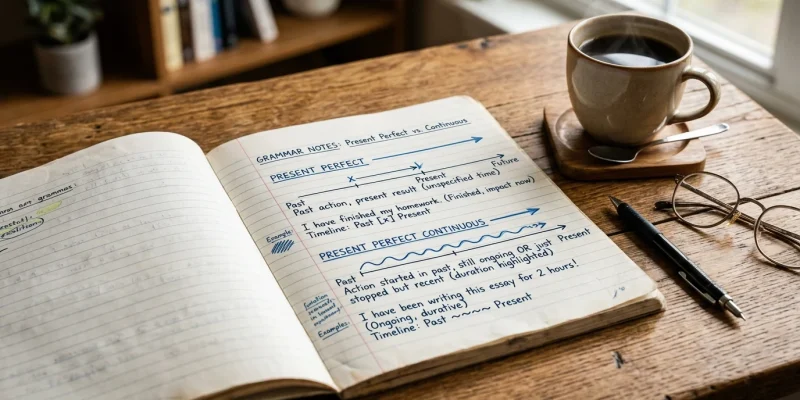 GRAMMAR NOTES: Present Perfect vs. Continuous
PRESENT PERFECT
Past Present Future
Past action, present result (unspecified time)
I have finished my homework. (Finished, impact now)
Timeline: Past [x] Present
Example:
PRESENT PERFECT CONTINUOUS
Past Present
Action started in past, still ongoing OR just
stopped but recent (duration highlighted)
I have been writing this essay for 2 hours!
(Ongoing, durative)
Examples:
Timeline: Past ~~~~ Present